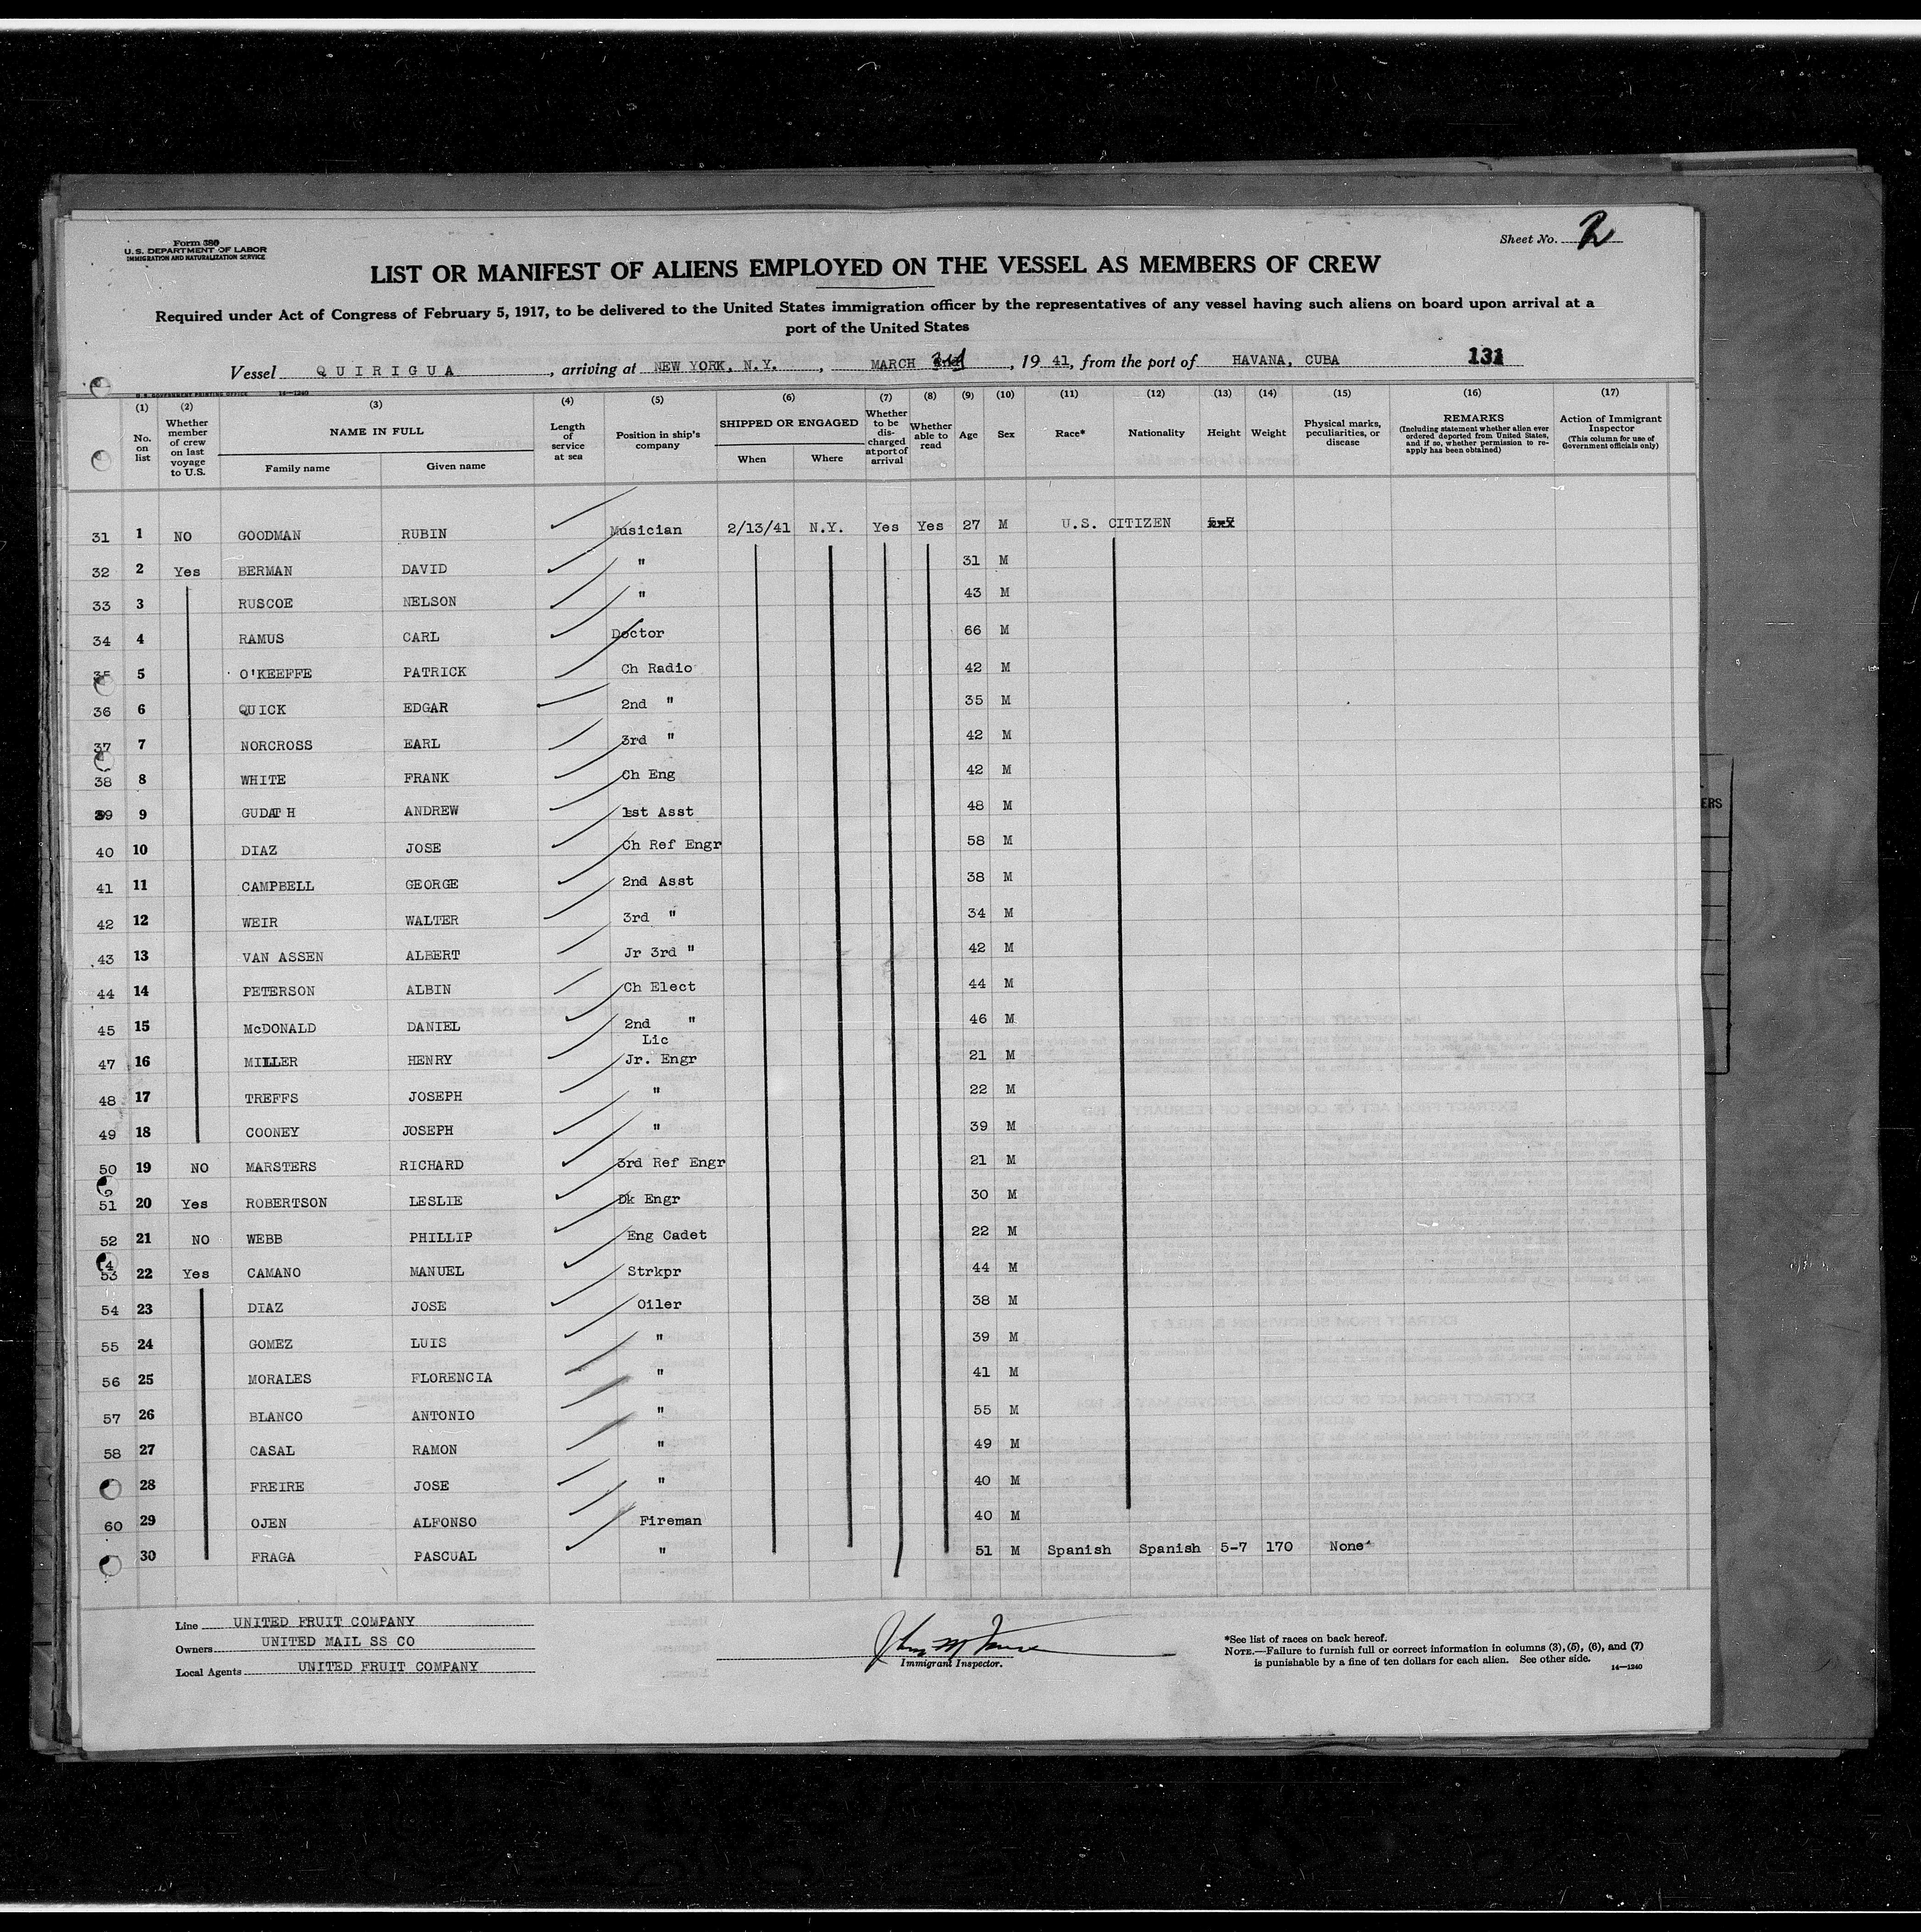 Form 380
U.S. DEPARTMENT OF LABOR
IMMIGRATION AND NATURALIZATION SERVICE
Sheet No. 2
LIST OR MANIFEST OF ALIENS EMPLOYED ON THE VESSEL AS MEMBERS OF CREW
Required under Act of Congress of February 5, 1917, to be delivered to the United States immigration officer by the representatives of any vessel having such aliens on board upon arrival at a
port of the United States
Vessel QUIRIGUA, arriving at NEW YORK, N.Y., MARCH 3rd, 1941, from the port of HAVANA, CUBA 131
U.S. GOVERNMENT PRINTING OFFICE 14—1240
(1) No. on list
(2) Whether member of crew on last voyage to U.S.
(3) NAME IN FULL Family name Given name
(4) Length of service at sea
(5) Position in ship's company
(6) SHIPPED OR ENGAGED When Where
(7) Whether to be discharged at port of arrival
(8) Whether able to read
(9) Age
(10) Sex
(11) Race*
(12) Nationality
(13) Height
(14) Weight
(15) Physical marks, peculiarities, or disease
(16) REMARKS (Including statement whether alien ever ordered deported from United States, and if so, whether permission to reapply has been obtained)
(17) Action of Immigrant Inspector (This column for use of Government officials only)
31 1 NO GOODMAN RUBIN Musician 2/13/41 N.Y. Yes Yes 27 M U.S. CITIZEN
32 2 Yes BERMAN DAVID " 31 M
33 3 RUSCOE NELSON " 43 M
34 4 RAMUS CARL Doctor 66 M
35 5 O'KEEFFE PATRICK Ch Radio 42 M
36 6 QUICK EDGAR 2nd " 35 M
37 7 NORCROSS EARL 3rd " 42 M
38 8 WHITE FRANK Ch Eng 42 M
39 9 GUDATH ANDREW 1st Asst 48 M
40 10 DIAZ JOSE Ch Ref Engr 58 M
41 11 CAMPBELL GEORGE 2nd Asst 38 M
42 12 WEIR WALTER 3rd " 34 M
43 13 VAN ASSEN ALBERT Jr 3rd " 42 M
44 14 PETERSON ALBIN Ch Elect 44 M
45 15 McDONALD DANIEL 2nd " 46 M
47 16 MILLER HENRY Lic Jr. Engr 21 M
48 17 TREFFS JOSEPH " 22 M
49 18 COONEY JOSEPH " 39 M
50 19 NO MARSTERS RICHARD 3rd Ref Engr 21 M
51 20 Yes ROBERTSON LESLIE Dk Engr 30 M
52 21 NO WEBB PHILLIP Eng Cadet 22 M
53 22 Yes CAMANO MANUEL Strkpr 44 M
54 23 DIAZ JOSE Oiler 38 M
55 24 GOMEZ LUIS " 39 M
56 25 MORALES FLORENCIA " 41 M
57 26 BLANCO ANTONIO " 55 M
58 27 CASAL RAMON " 49 M
28 FREIRE JOSE " 40 M
60 29 OJEN ALFONSO Fireman 40 M
30 FRAGA PASCUAL " 51 M Spanish Spanish 5-7 170 None
Line UNITED FRUIT COMPANY
Owners UNITED MAIL SS CO
Local Agents UNITED FRUIT COMPANY
Immigrant Inspector.
*See list of races on back hereof.
NOTE.—Failure to furnish full or correct information in columns (3), (5), (6), and (7)
is punishable by a fine of ten dollars for each alien. See other side.
14—1240
ERS